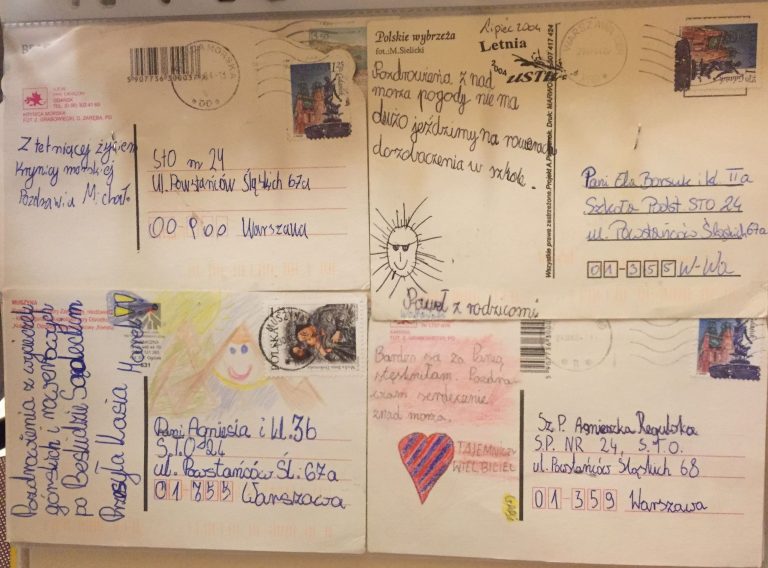 5907736300037
KRYNICA MORSKA
Z tętniącej życiem
Krynicy morskiej
Pozdrawia Michał.
STO nr 24
Ul. Powstańców Śląskich 67a
00-P00 Warszawa
Polskie wybrzeża
fot.: M. Sielicki
Lipiec 2004
Letnia
2004
Pozdrowienia z nad
morza pogody nie ma
dużo jeździmy na rowerach
do zobaczenia w szkole.
Paweł z rodzicami
WARSZAWA
Pani Ela Borsuk i kl IIa
Szkoła Podst STO 24
ul. Powstańców Śląskich 67a
01-355 W-Wa
MUSZYNA
Pozdrowienia z wycieczek
górskich i rowerowych
po Beskidzie Sądeckim
Przesyła Kasia Marek
POLSKA
Pani Agniesia i kl. 3b
S.T.O 24
ul. Powstańców Śl. 67a
01-355 Warszawa
Bardzo się za Panią
stęskniłam. Pozdra-
wiam serdecznie
znad morza.
TAJEMNICZY
WIELBICIEL
Sz. P. Agnieszka Regulska
S.P. NR 24, S.T.O.
ul. Powstańców Śląskich 68
01-359 Warszawa